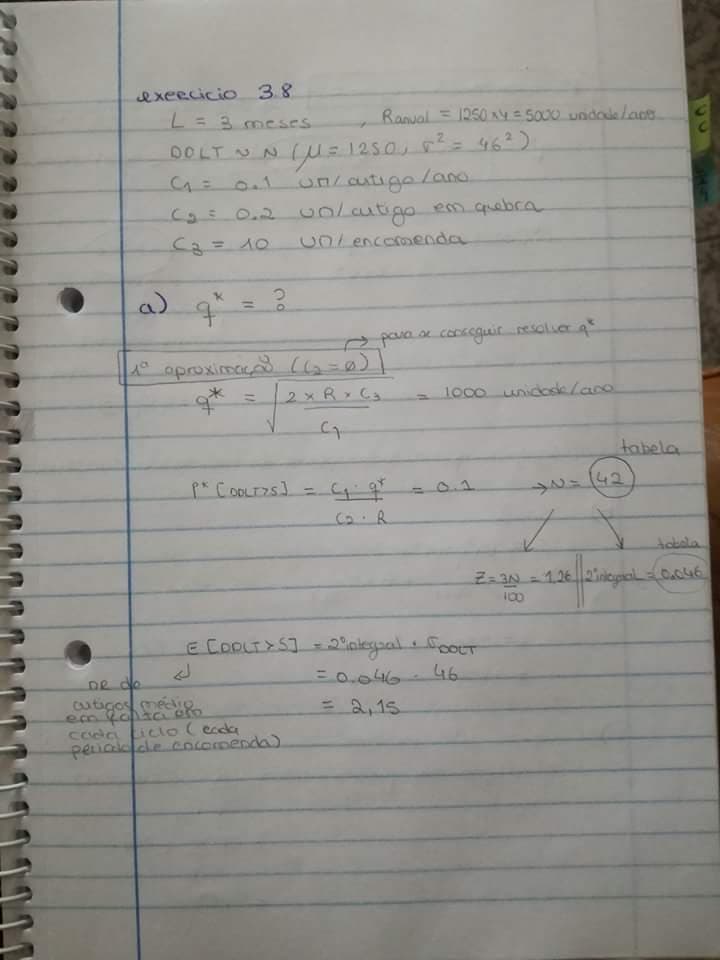 exercicio 3.8
L = 3 meses , Ranual = 1250x4 = 5000 unidade/ano
DDLT ~ N (μ = 1250, σ² = 46²)
C1 = 0.1 UM/artigo/ano
C2 = 0.2 UM/artigo em quebra
C3 = 10 UM/encomenda
a) q* = ?
→ para se conseguir resolver q*
1º aproximação (C2 = ø)
q* = √(2 x R x C3 / C1) = 1000 unidade/ano
tabela
P* [DDLT>S] = C1 · q* / C2 · R = 0.1 → N = 42
tabela
Z = 3N/100 = 1.26 || 2º integral = 0.046
E [DDLT>S] = 2º integral · σDDLT
= 0.046 · 46
= 2,15
artigos médio
em falta em
cada ciclo (cada
periodo de encomenda)